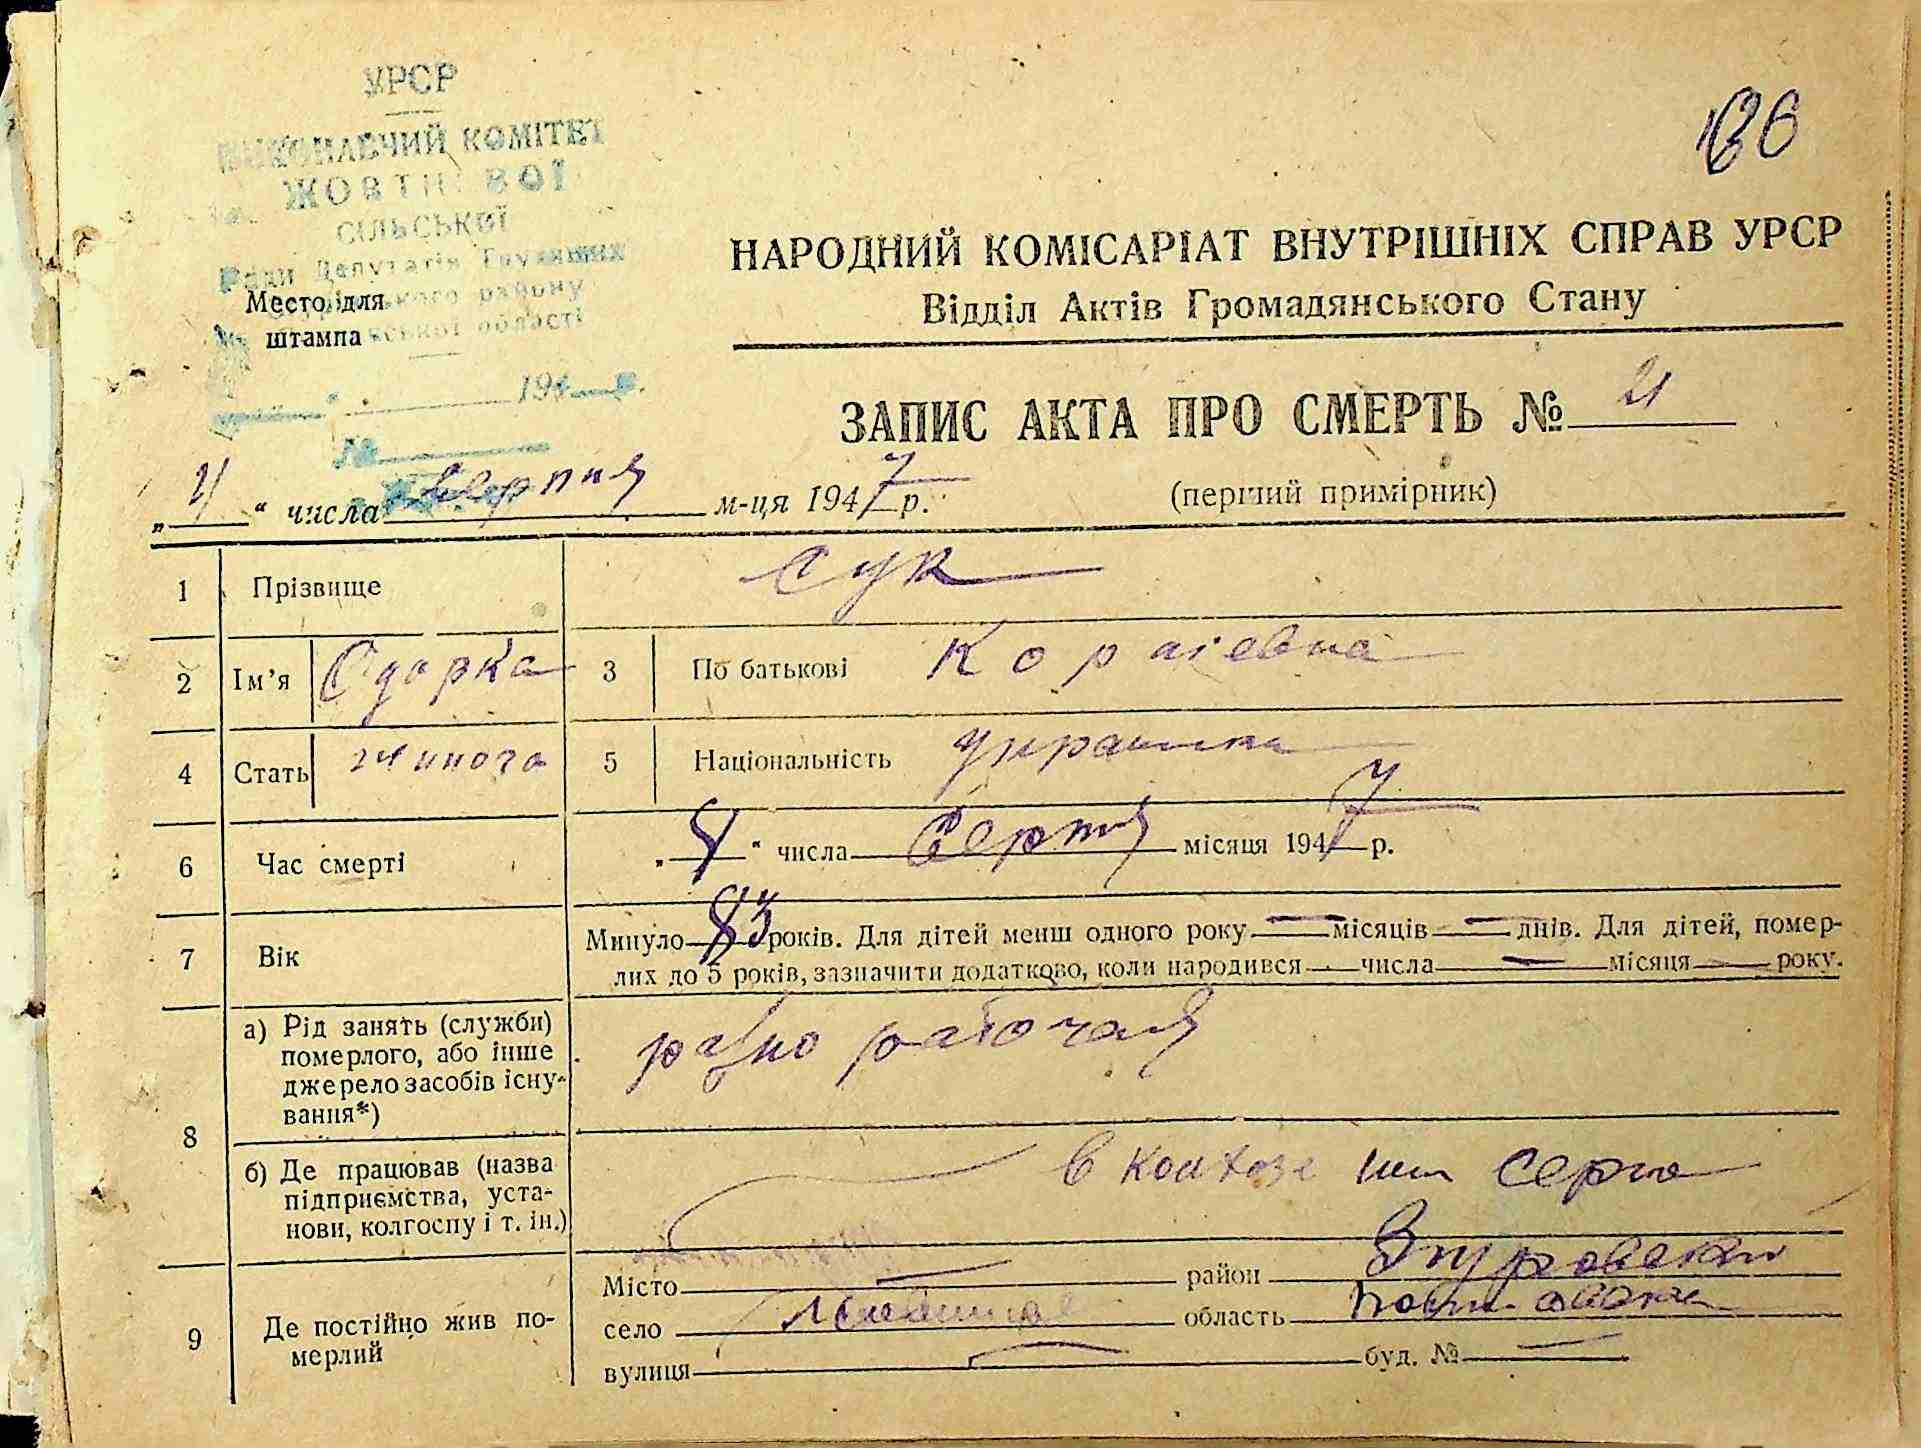 УРСР
ВИКОНАВЧИЙ КОМІТЕТ
ЖОВТНЕВОЇ
СІЛЬСЬКОЇ
Ради Депутатів Трудящих
району
області
Место для
штампа
194 р.
№
НАРОДНИЙ КОМІСАРІАТ ВНУТРІШНІХ СПРАВ УРСР
Відділ Актів Громадянського Стану
ЗАПИС АКТА ПРО СМЕРТЬ № 21
„ 4 “ числа Серпня м-ця 1947 р.
(перший примірник)
1 Прізвище Сук
2 Ім'я Одарка 3 По батькові
4 Стать жиноча 5 Національність Украинка
6 Час смерті „ 4 “ числа Серпня місяця 1947 р.
7 Вік Минуло 83 років. Для дітей менш одного року — місяців — днів. Для дітей, помер-
лих до 5 років, зазначити додатково, коли народився — числа — місяця — року.
8 а) Рід занять (служби)
померлого, або інше
джерело засобів існу-
вання*)
рабочая
б) Де працював (назва
підприємства, уста-
нови, колгоспу і т. ін.)
в колхозе им
9 Де постійно жив по-
мерлий
Місто — район Згуровский
село область Полтавская
вулиця — буд. № —